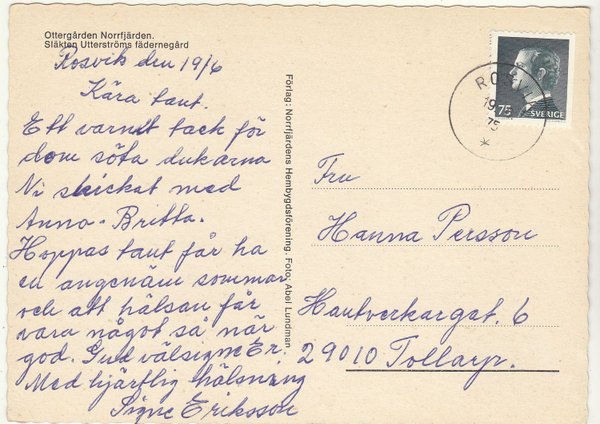 Ottergården Norrfjärden.
Släkten Utterströms fädernegård
Rosvik den 19/6
Kära tant.
Ett varmt tack för
dom söta dukarna
Ni skickat med
Anna-Britta.
Hoppas tant får ha
en angenäm sommar
och att hälsan får
vara något så när
god. Gud välsigne Er.
Med hjärtlig hälsning
Signe Eriksson
Förlag: Norrfjärdens Hembygdsförening. Foto: Abel Lundman
75
SVERIGE
19
75
Fru
Hanna Persson
Hantverkargat. 6
29010 Tollarp.